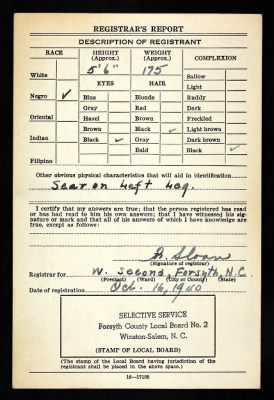 REGISTRAR'S REPORT
DESCRIPTION OF REGISTRANT
RACE HEIGHT (Approx.) WEIGHT (Approx.) COMPLEXION
White 5'6" 175 Sallow
EYES HAIR Light
Negro ✓ Blue Blonde Ruddy
Gray Red Dark
Oriental Hazel Brown Freckled
Brown Black ✓ Light brown
Indian Black ✓ Gray Dark brown
Bald Black ✓
Filipino
Other obvious physical characteristics that will aid in identification
Scar on Left Leg.
I certify that my answers are true; that the person registered has read
or has had read to him his own answers; that I have witnessed his
signature or mark and that all of his answers of which I have knowledge are
true, except as follows:
Sloan
(Signature of registrar)
Registrar for W. Second, Forsyth, N.C.
(Precinct) (Ward) (City or County) (State)
Date of registration Oct. 16, 1940
SELECTIVE SERVICE
Forsyth County Local Board No. 2
Winston-Salem, N. C.
(STAMP OF LOCAL BOARD)
(The stamp of the Local Board having jurisdiction of the
registrant shall be placed in the above space.)
16—17105